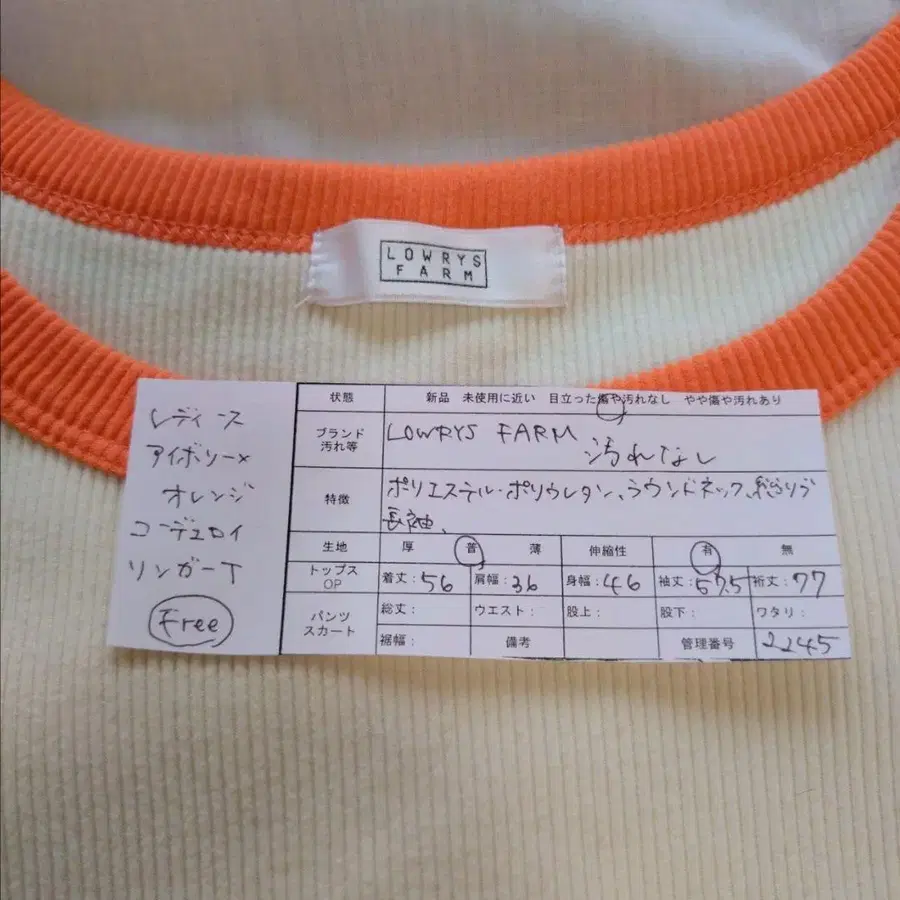 LOWRYS
FARM
レディース
アイボリー×
オレンジ
コーデュロイ
リンガーT
Free
状態 新品 未使用に近い 目立った傷や汚れなし やや傷や汚れあり
ブランド
汚れ等
LOWRYS FARM
汚れなし
特徴
ポリエステル・ポリウレタン、ラウンドネック、
長袖、
生地 厚 普 薄 伸縮性 有 無
トップス
OP
着丈:56 肩幅:36 身幅:46 袖丈:57.5 裄丈:77
パンツ
スカート
総丈: ウエスト: 股上: 股下: ワタリ:
裾幅: 備考 管理番号 2245